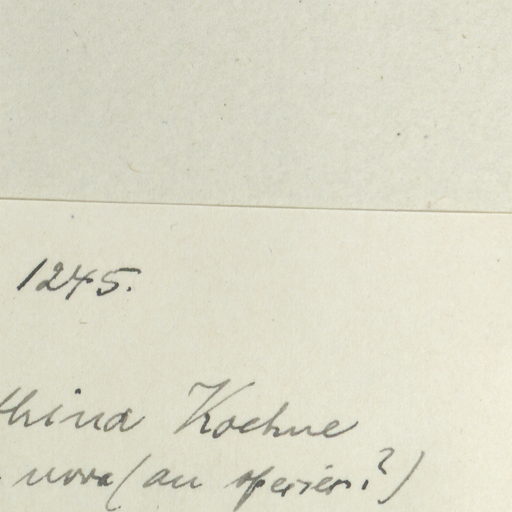 1245.
thina Koehne
nova (an species?)